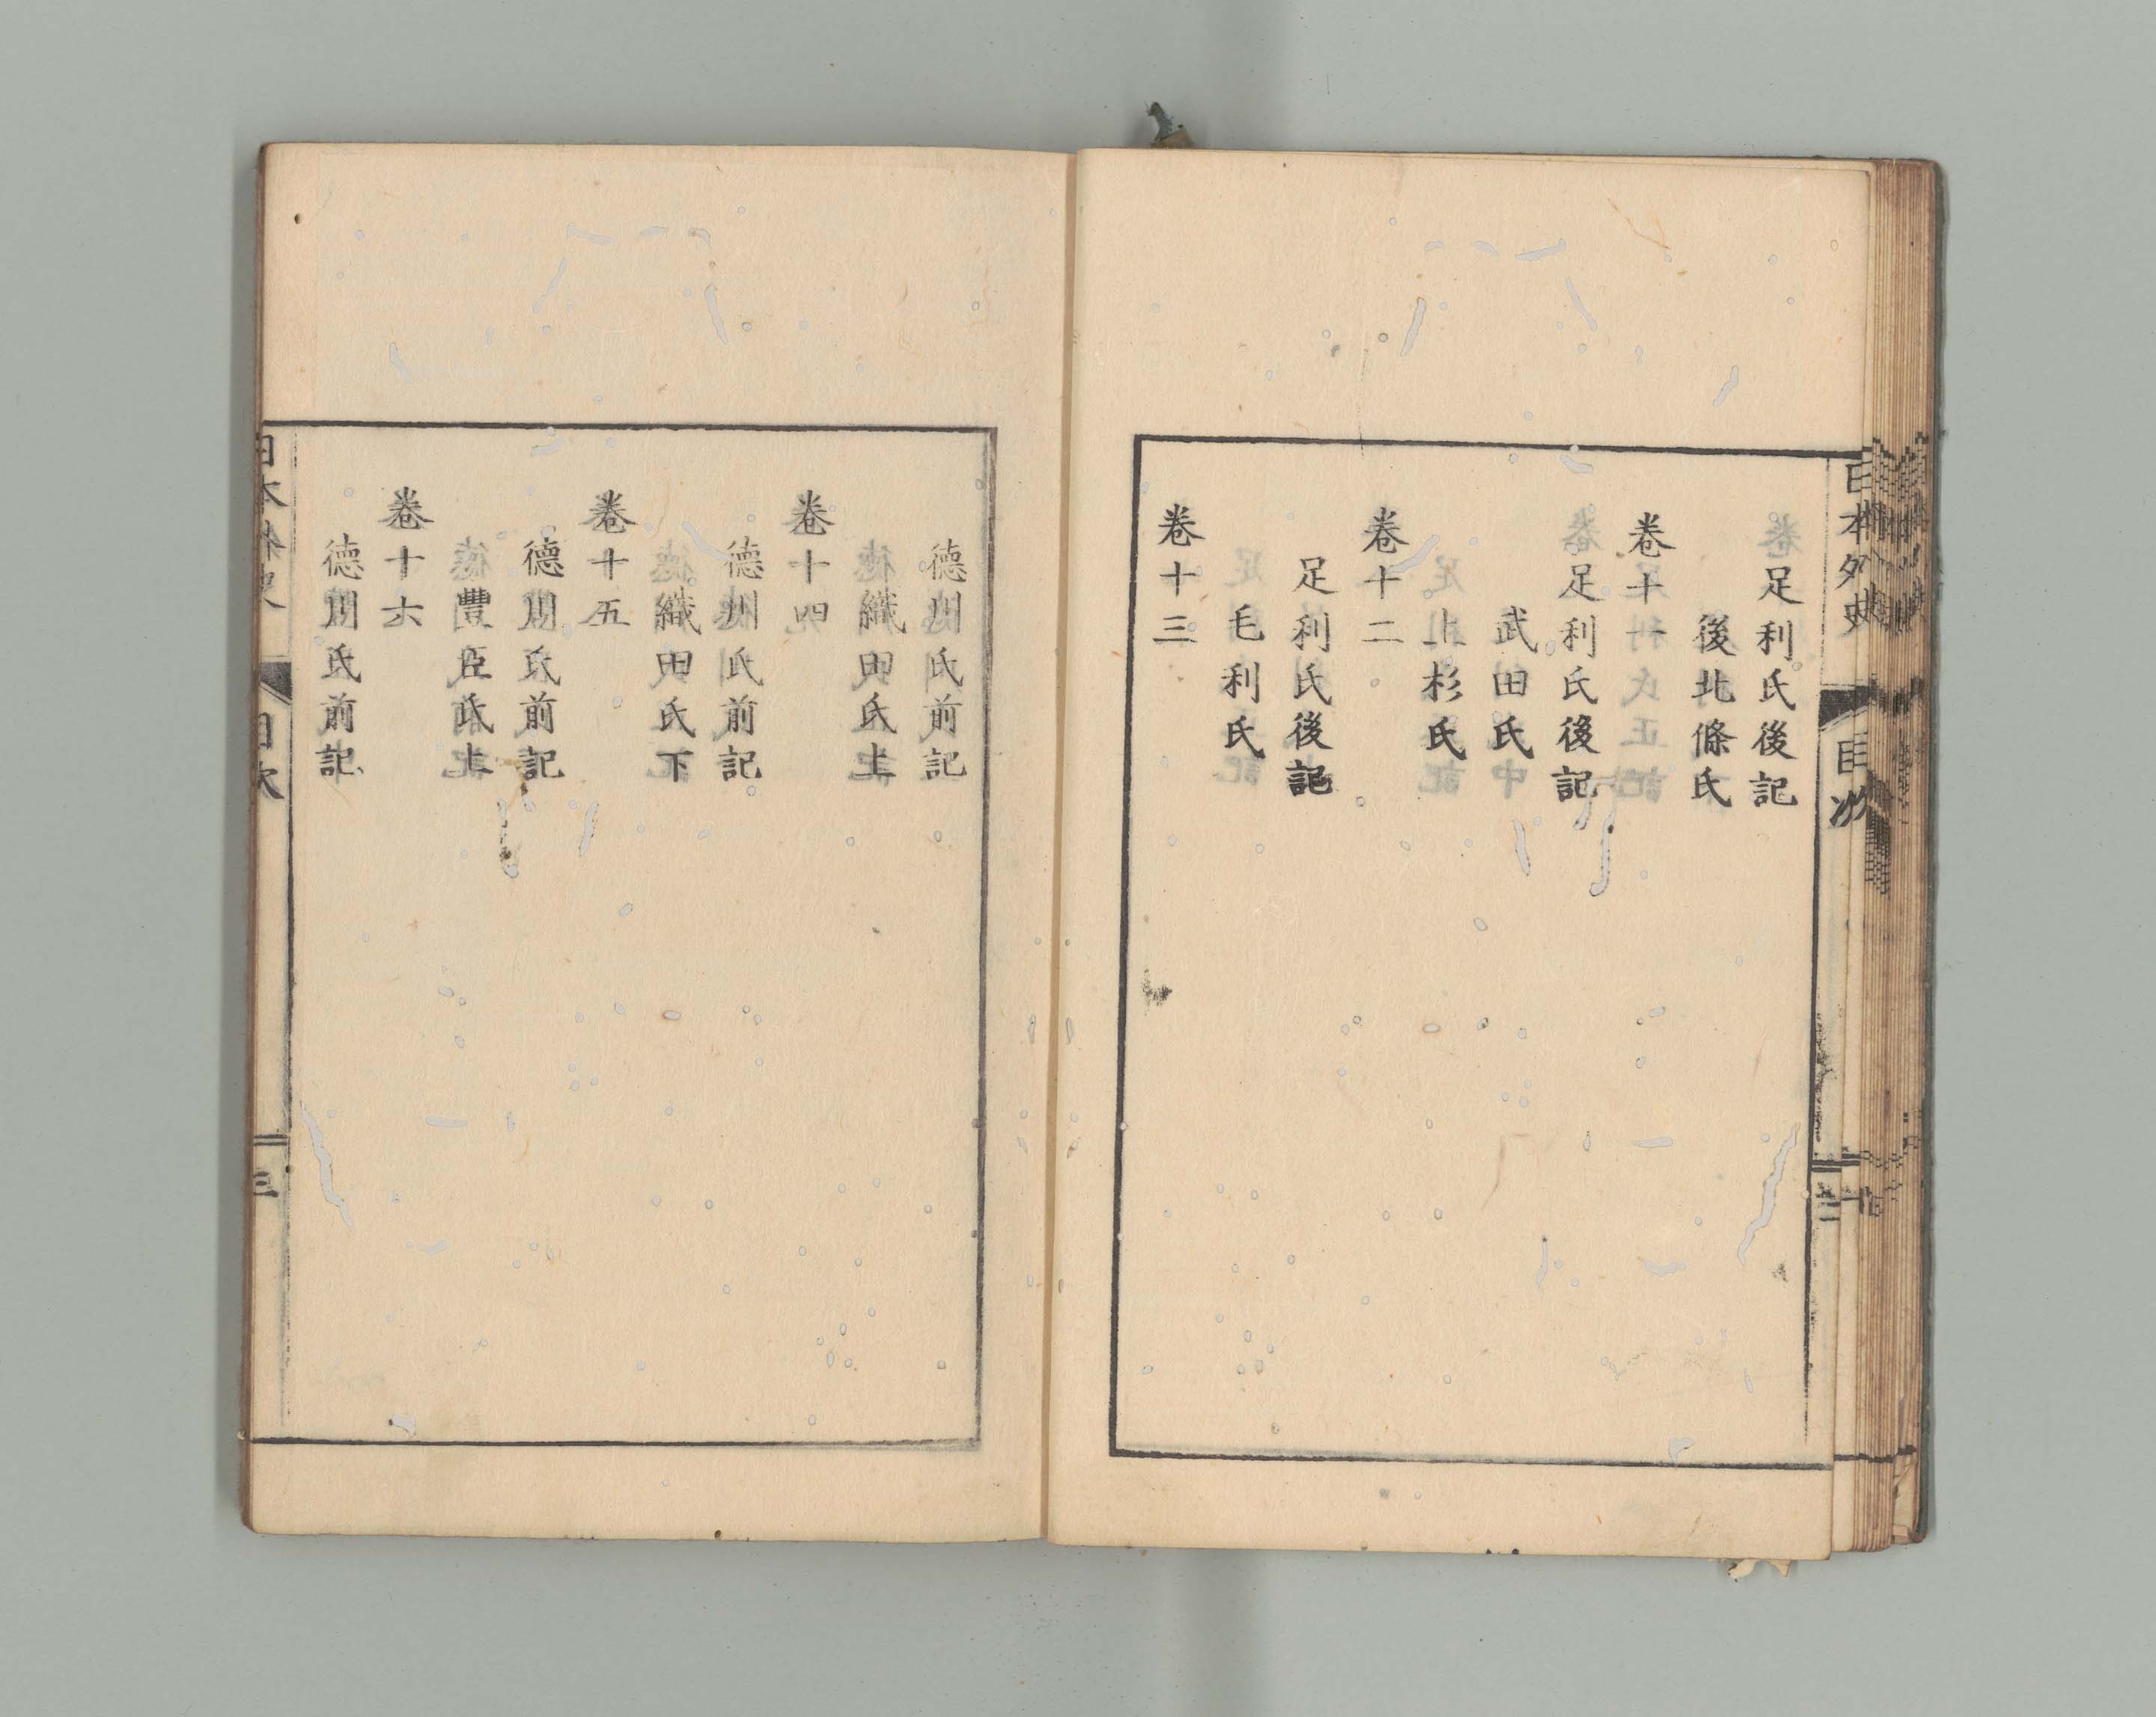 日本外史
目次
二
足利氏後記
後北條氏
卷十一
足利氏後記
武田氏
上杉氏
卷十二
足利氏後記
毛利氏
卷十三
德川氏前記
織田氏上
卷十四
德川氏前記
織田氏下
卷十五
德川氏前記
豐臣氏上
卷十六
德川氏前記
日本外史
目次
三